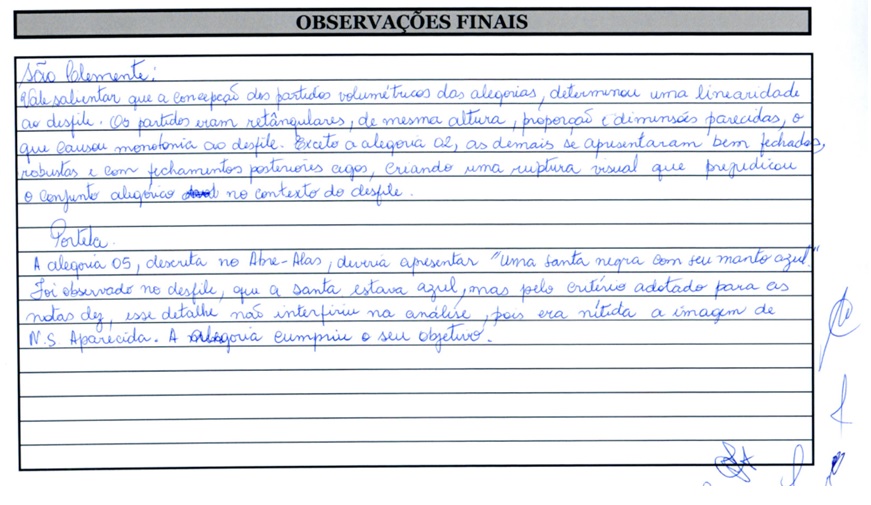 OBSERVAÇÕES FINAIS
São Clemente:
Vale salientar que a concepção dos partidos volumétricos das alegorias, determinou uma linearidade
ao desfile. Os partidos eram retângulares, de mesma altura, proporção e dimensões parecidas, o
que causou monotonia ao desfile. Exceto a alegoria 02, as demais se apresentaram bem fechadas,
robustas e com fechamentos posteriores cegos, criando uma ruptura visual que prejudicou
o conjunto alegórico no contexto do desfile.
Portela.
A alegoria 05, descrita no Abre-Alas, deveria apresentar "uma santa negra com seu manto azul."
Foi observado no desfile, que a santa estava azul, mas pelo critério adotado para as
notas dez, esse detalhe não interfiriu na análise, pois era nítida a imagem de
N.S. Aparecida. A alegoria cumpriu o seu objetivo.